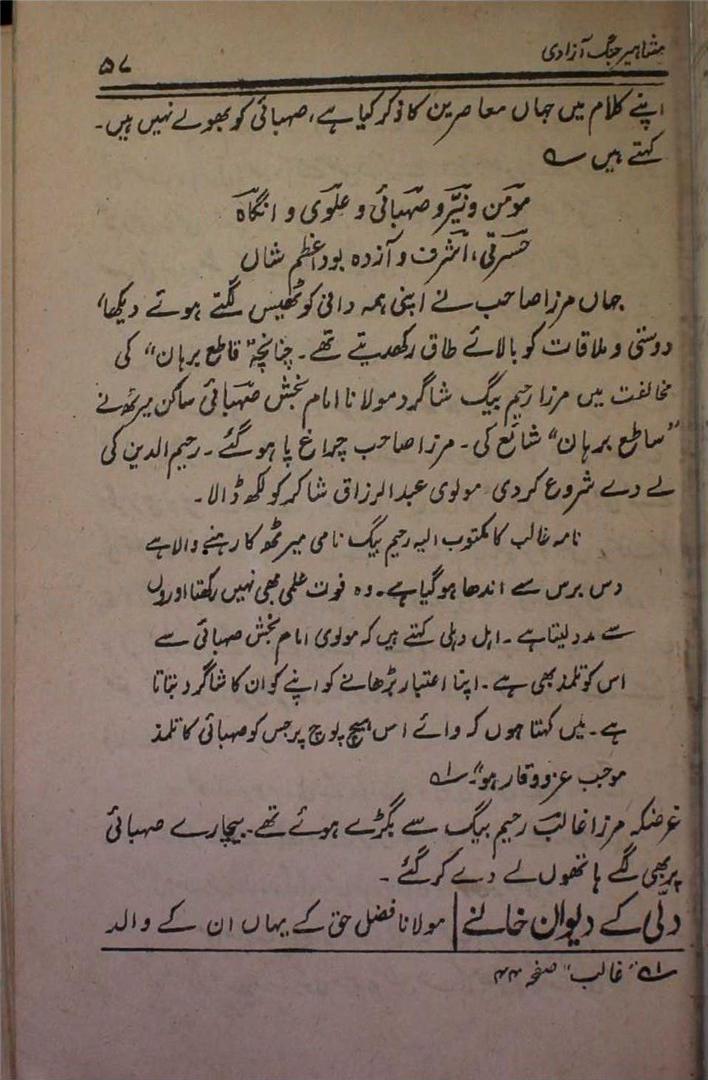 مشاہیر جنگ آزادی
۵۷
اپنے کلام میں جہاں معاصرین کا ذکر کیا ہے، صہبائی کو بھولے نہیں ہیں۔
کہتے ہیں ؎
مومن و نیّر و صہبائی و علوی و انگاہ
حسرتی، اشرف و آزدہ بود اعظم شاں
جہاں مرزا صاحب نے اپنی ہمہ دانی کو ٹھیس لگتے ہوئے دیکھا،
دوستی و ملاقات کو بالائے طاق رکھدیتے تھے۔ چنانچہ "قاطع برہان" کی
مخالفت میں مرزا رحیم بیگ شاگرد مولانا امام بخش صہبائی ساکن میرٹھ نے
"ساطع برہان" شائع کی۔ مرزا صاحب چراغ پا ہو گئے۔ رحیم الدین کی
لے دے شروع کر دی مولوی عبدالرزاق شاکر کو لکھ ڈالا۔
نامہ غالب کا مکتوب الیہ رحیم بیگ نامی میرٹھ کا رہنے والا ہے
دس برس سے اندھا ہو گیا ہے۔ وہ قوت علمی بھی نہیں رکھتا اوروں
سے مدد لیتا ہے۔ اہل دہلی کہتے ہیں کہ مولوی امام بخش صہبائی سے
اس کو تلمذ بھی ہے۔ اپنا اعتبار بڑھانے کو اپنے کو ان کا شاگرد بتاتا
ہے۔ میں کہتا ہوں کہ وائے اس ہیچ پوچ پر جس کو صہبائی کا تلمذ
موجب عز و وقار ہو"۔ ؎۱
غرضکہ مرزا غالب رحیم بیگ سے بگڑے ہوئے تھے۔ بیچارے صہبائی
پر بھی لگے ہاتھوں لے دے کر گئے۔
دلّی کے دیوان خانے | مولانا فضل حق کے یہاں ان کے والد
؎۱ "غالب" صفحہ ۴۴